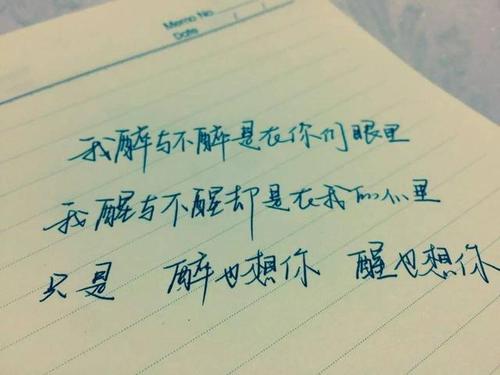 Memo No.
Date / /
我醉与不醉是在你们眼里
我醒与不醒却是在我的心里
只是 醉也想你 醒也想你